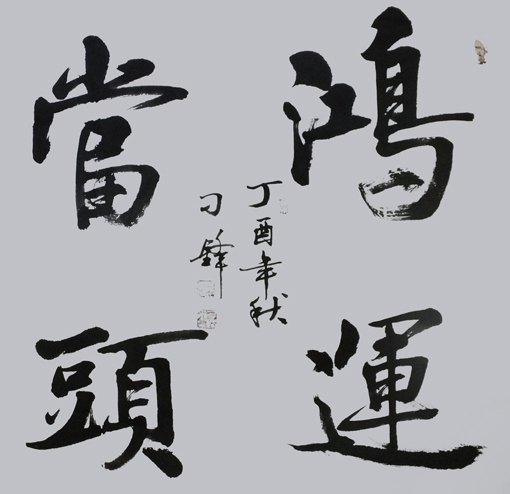 鴻運
當頭
丁酉年秋
刁鋒